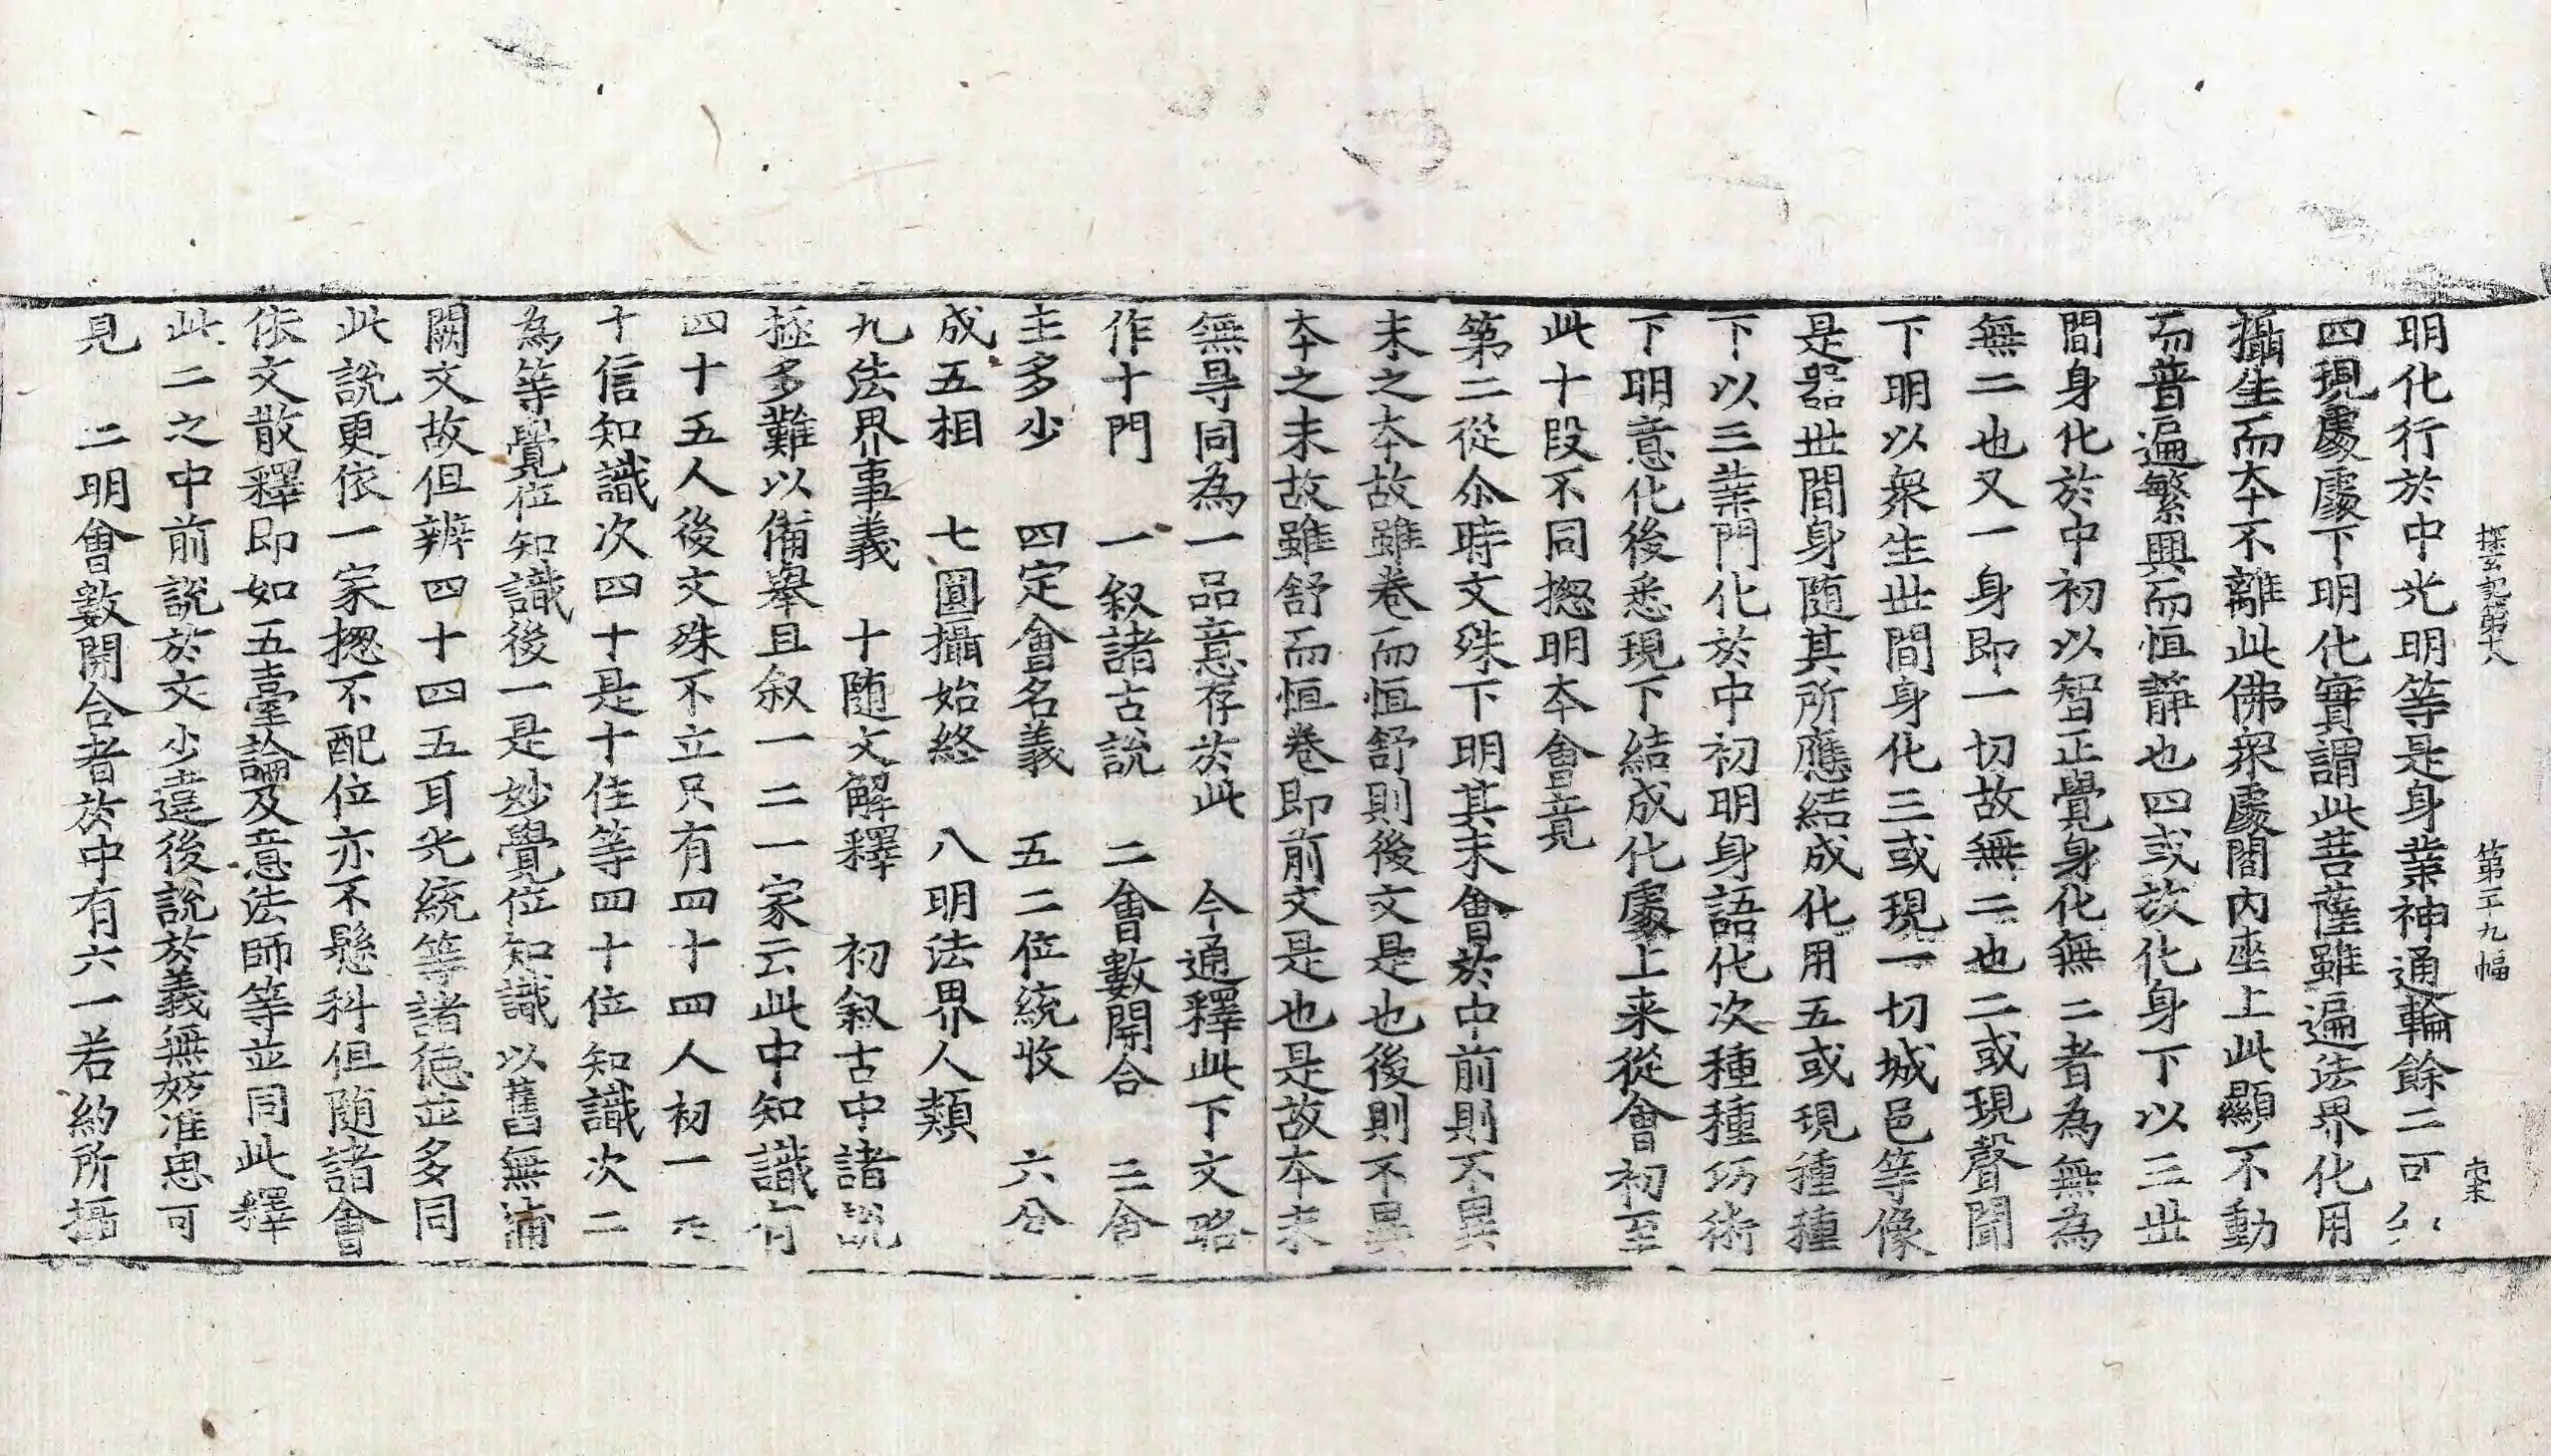 探玄記第十八 第二十九幅 宋
明化行於中光明等是身業神通輪餘二可
四現處處下明化實謂此菩薩雖遍法界化用
攝生而夲不離此佛衆處閻内座上此顯不動
而普遍繁興而恒靜也四或放化身下以三世
間身化於中初以智正覺身化無二者為無為
無二也又一身即一切故無二也二或現聲聞
下明以衆生世間身化三或現一切城邑等像
是器世間身随其所應結成化用五或現種種
下以三業門化於中初明身語化次種種伎術
下明意化後悉現下結成化處上来從會初至
此十段不同揔明夲會竟
第二從尒時文殊下明其末會於中前則不異
末之夲故雖卷而恒舒則後文是也後則不異
夲之末故雖舒而恒卷即前文是也是故夲末
無导同為一品意存於此 今通釋此下文略
作十門 一叙諸古說 二會數開合 三會
主多少 四定會名義 五二位統收 六分
成五相 七圓攝始終 八明法界人類
九法界事義 十随文解釋 初叙古中諸說
極多難以備舉且叙一二一家云此中知識有
四十五人後文殊不立只有四十四人初一是
十信知識次四十是十住等四十位知識次二
為等覺位知識後一是妙覺位知識以舊無浦
闕文故但辨四十四五耳光統等諸德並多同
此說更依一家揔不配位亦不懸科但随諸會
依文散釋即如五臺論及意法師等並同此釋
此二之中前說於文少違後說於義無妨准思可
見 二明會數開合者於中有六一若約所攝